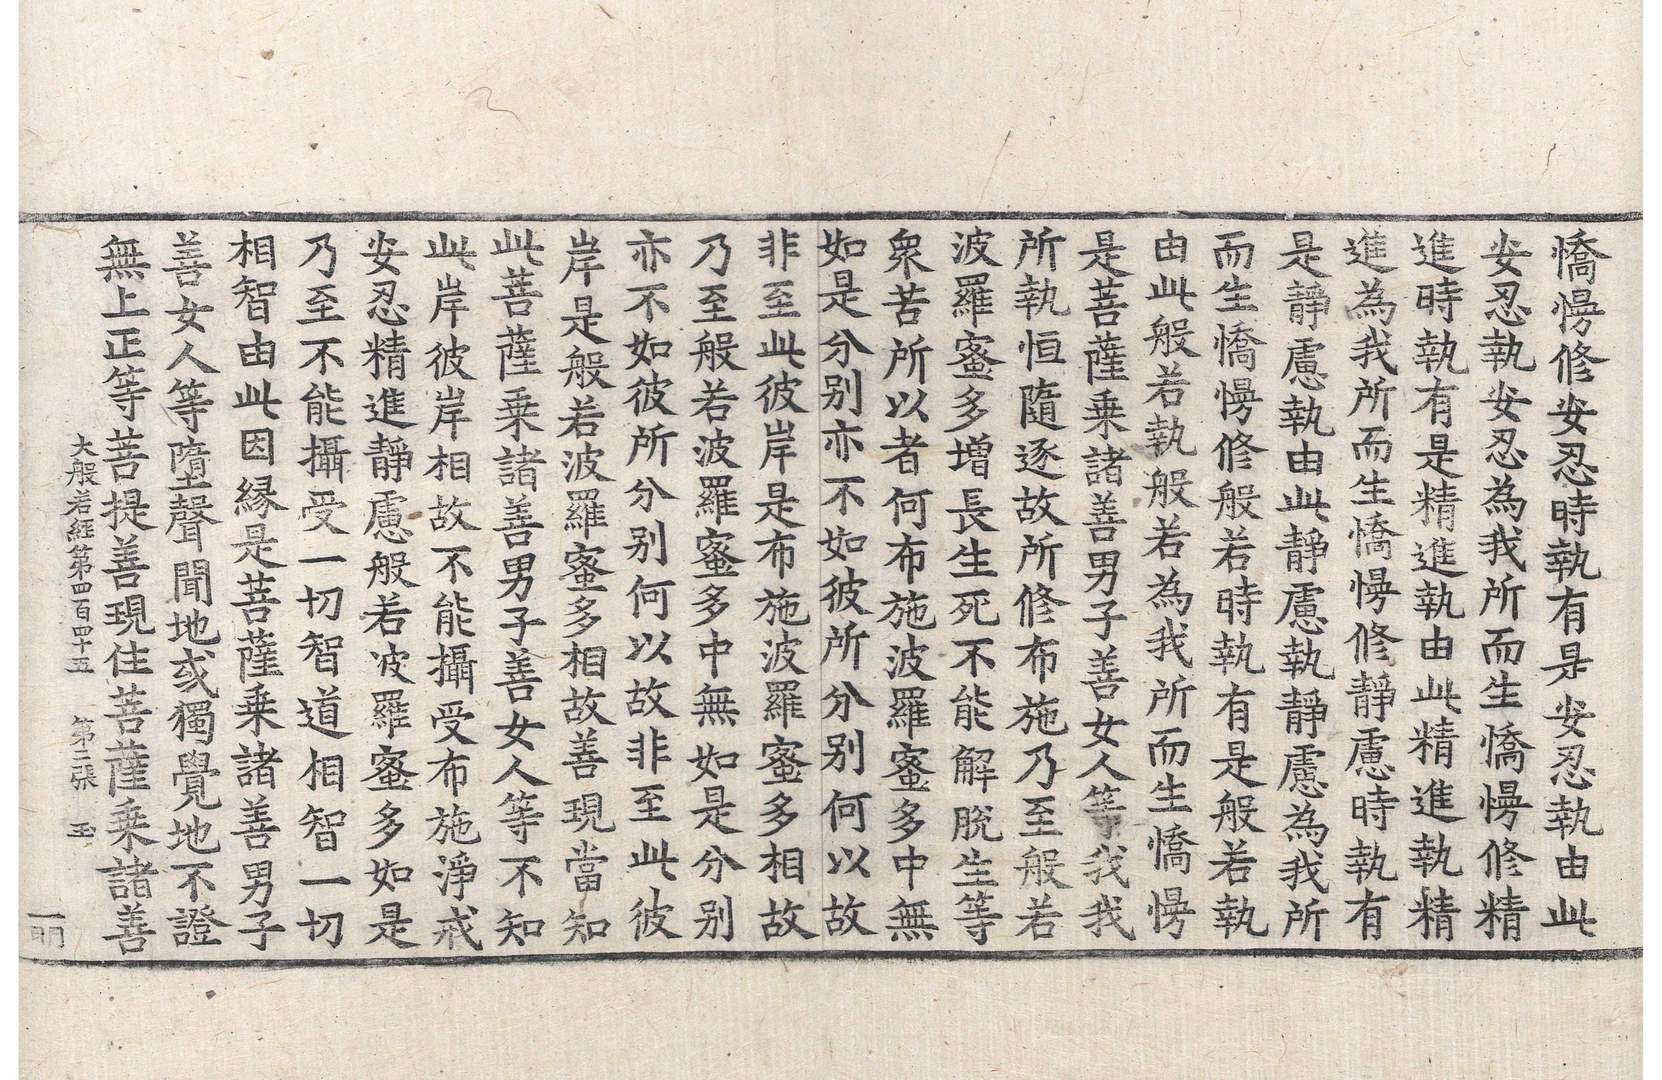 憍慢修安忍時執有是安忍執由此
安忍執安忍為我所而生憍慢修精
進時執有是精進執由此精進執精
進為我所而生憍慢修靜慮時執有
是靜慮執由此靜慮執靜慮為我所
而生憍慢修般若時執有是般若執
由此般若執般若為我所而生憍慢
是菩薩乗諸善男子善女人等我我
所執恒隨逐故所修布施乃至般若
波羅蜜多增長生死不能解脫生等
衆苦所以者何布施波羅蜜多中無
如是分別亦不如彼所分別何以故
非至此彼岸是布施波羅蜜多相故
乃至般若波羅蜜多中無如是分別
亦不如彼所分別何以故非至此彼
岸是般若波羅蜜多相故善現當知
此菩薩乗諸善男子善女人等不知
此岸彼岸相故不能攝受布施淨戒
安忍精進靜慮般若波羅蜜多如是
乃至不能攝受一切智道相智一切
相智由此因緣是菩薩乗諸善男子
善女人等墮聲聞地或獨覺地不證
無上正等菩提善現住菩薩乗諸善
大般若經第四百四十五 第二張 玉